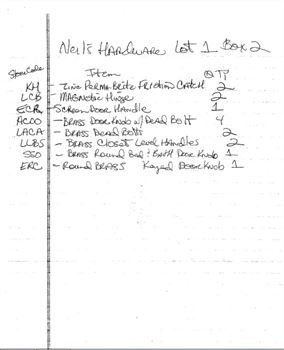 Neil's Hardware Lot 1 Box 2
Store Code Item QTY
KH - Zinc Perma-Brite Friction Catch 2
LCB - Magnetic Hinge 2
ECR - Screen Door Handle 1
ACOO - Brass Door Knob w/ Dead Bolt 4
LACA - Brass Dead Bolts 2
LLBS - Brass Closet Level Handles 2
SSO - Brass Round Bed & Bath Door Knob 1
ERC - Round Brass Keyed Door Knob 1